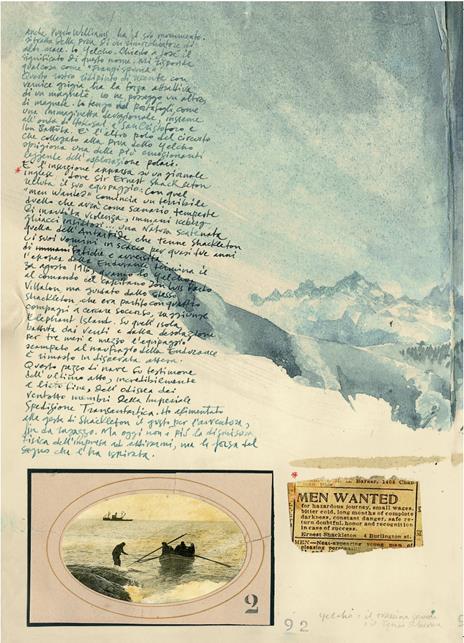 Anche Puerto Williams ha il suo monumento.
Si tratta della prua di un rimorchiatore di
alto mare. Lo Yelcho. Chiedo a José il
significato di questo nome. Mi risponde
qualcosa come "
Questo rostro ridipinto di recente con
vernice grigia ha la forza attrattiva
di un magnete. Io ne posseggo un altro,
di magnete. Lo tengo nel portafogli, come
una immaginetta devozionale, insieme
all'onda di Hokusai, a San Cristoforo e
Ibn Battuta. È l'altro polo del circuito
che collegato alla prua dello Yelcho
sprigiona una delle più emozionanti
leggende dell'esplorazione polare.
* È l'inserzione apparsa su un giornale
inglese dove Sir Ernest Shackleton
recluta il suo equipaggio. Con quel
"men wanted" comincia un terribile
duello che avrà come scenario tempeste
di inaudita violenza, immani iceberg,
ghiacci una natura scatenata
quella dell'Antartide che tenne Shackleton
e i suoi uomini in scacco per quasi due anni
di fatiche e avversità.
l'epopea della Endurance termina il
30 agosto 1916 quando lo Yelcho
al comando del capitano Don Luis Pardo
Villalon ma guidato dallo stesso
Shackleton che era partito con quattro
compagni a cercare soccorso, raggiunge
Elephant Island. Su quell'isola
battuta dai venti e dalla desolazione
per tre mesi e mezzo l'equipaggio
scampato al naufragio della Endurance
è rimasto in disperata attesa.
Questo pezzo di nave fu testimone
dell'ultimo atto, incredibilmente
a lieto fine, dell'odissea dei
ventotto membri della Imperiale
Spedizione Transantartica. Ho alimentato
alle gesta di Shackleton il gusto per l'avventura,
fin da ragazzo. Ma oggi non è più la dimensione
fisica dell'impresa ad attirarmi, ma la forza del
sogno che l'ha ispirata.
*
Bazaar, 1404 Chap
MEN WANTED
for hazardous journey, small wages,
bitter cold, long months of complete
darkness, constant danger, safe re-
turn doubtful, honor and recognition
in case of success.
Ernest Shackleton 4 Burlington st.
MEN—Neat-appearing young man of
pleasing
2
92
Yelcho: il